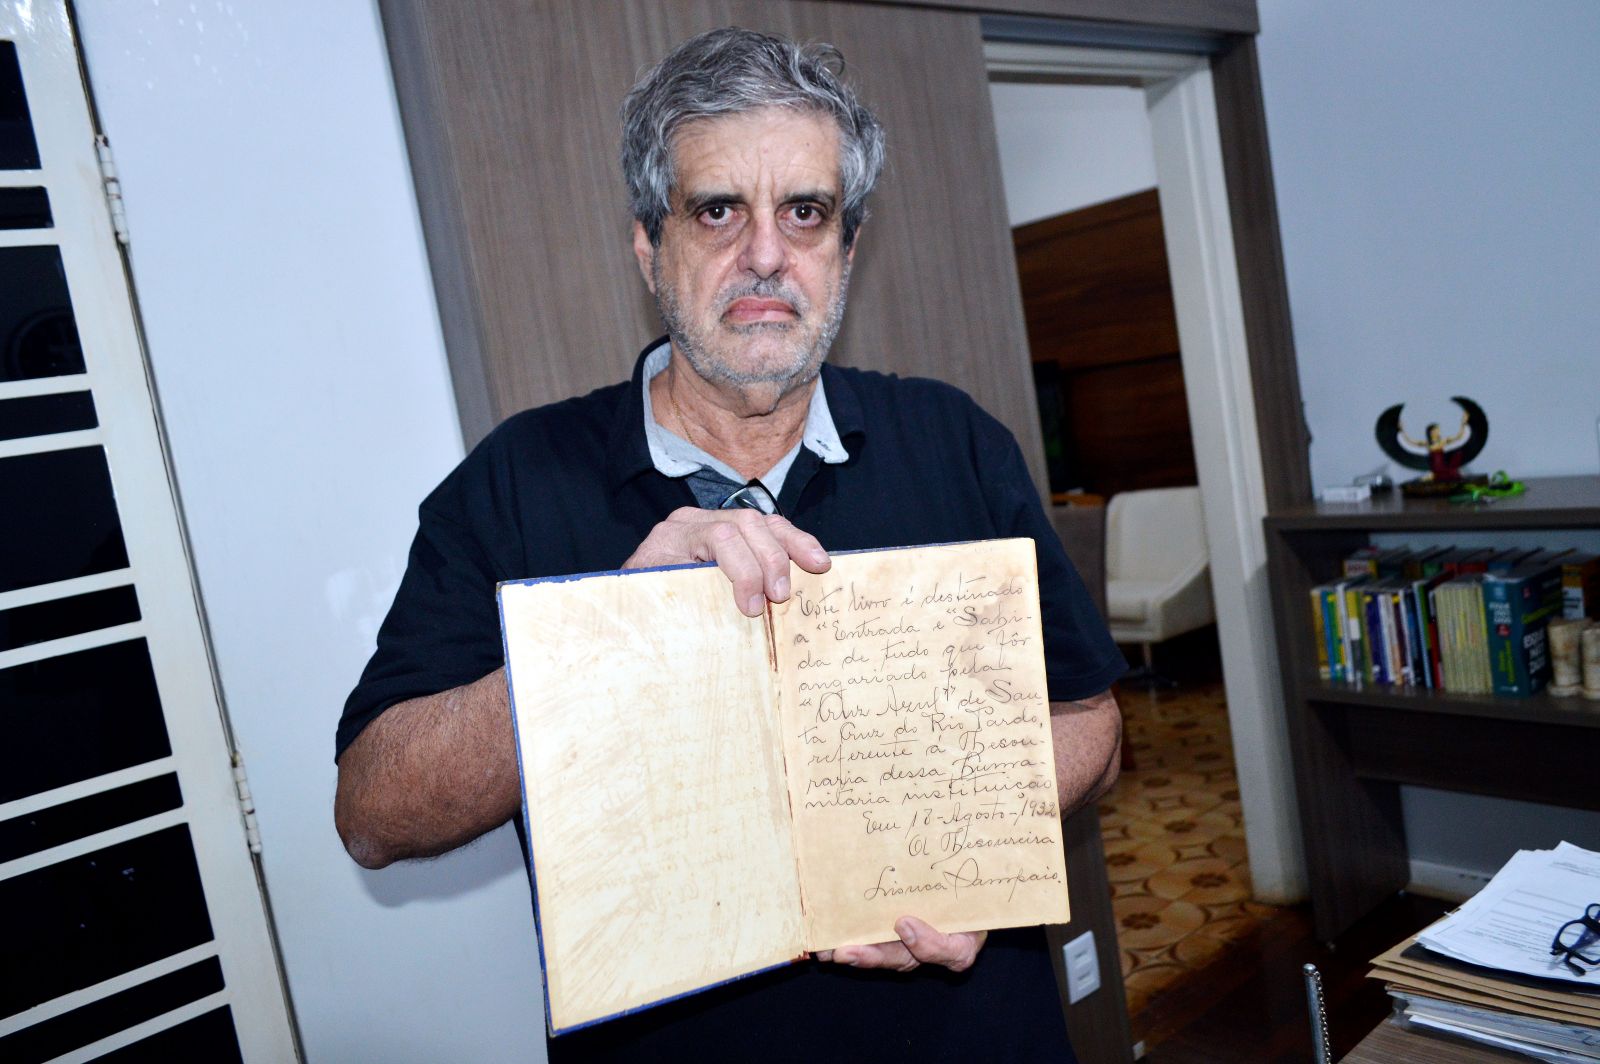 Este livro é destinado
a "Entrada e Sahi-
da de tudo que fôr
angariado pela
"Cruz Azul" de San-
ta Cruz do Rio Pardo,
referente á Thesou-
raria dessa huma-
nitaria instituição
Em 17-Agosto-1932
A Thesoureira
Sampaio.